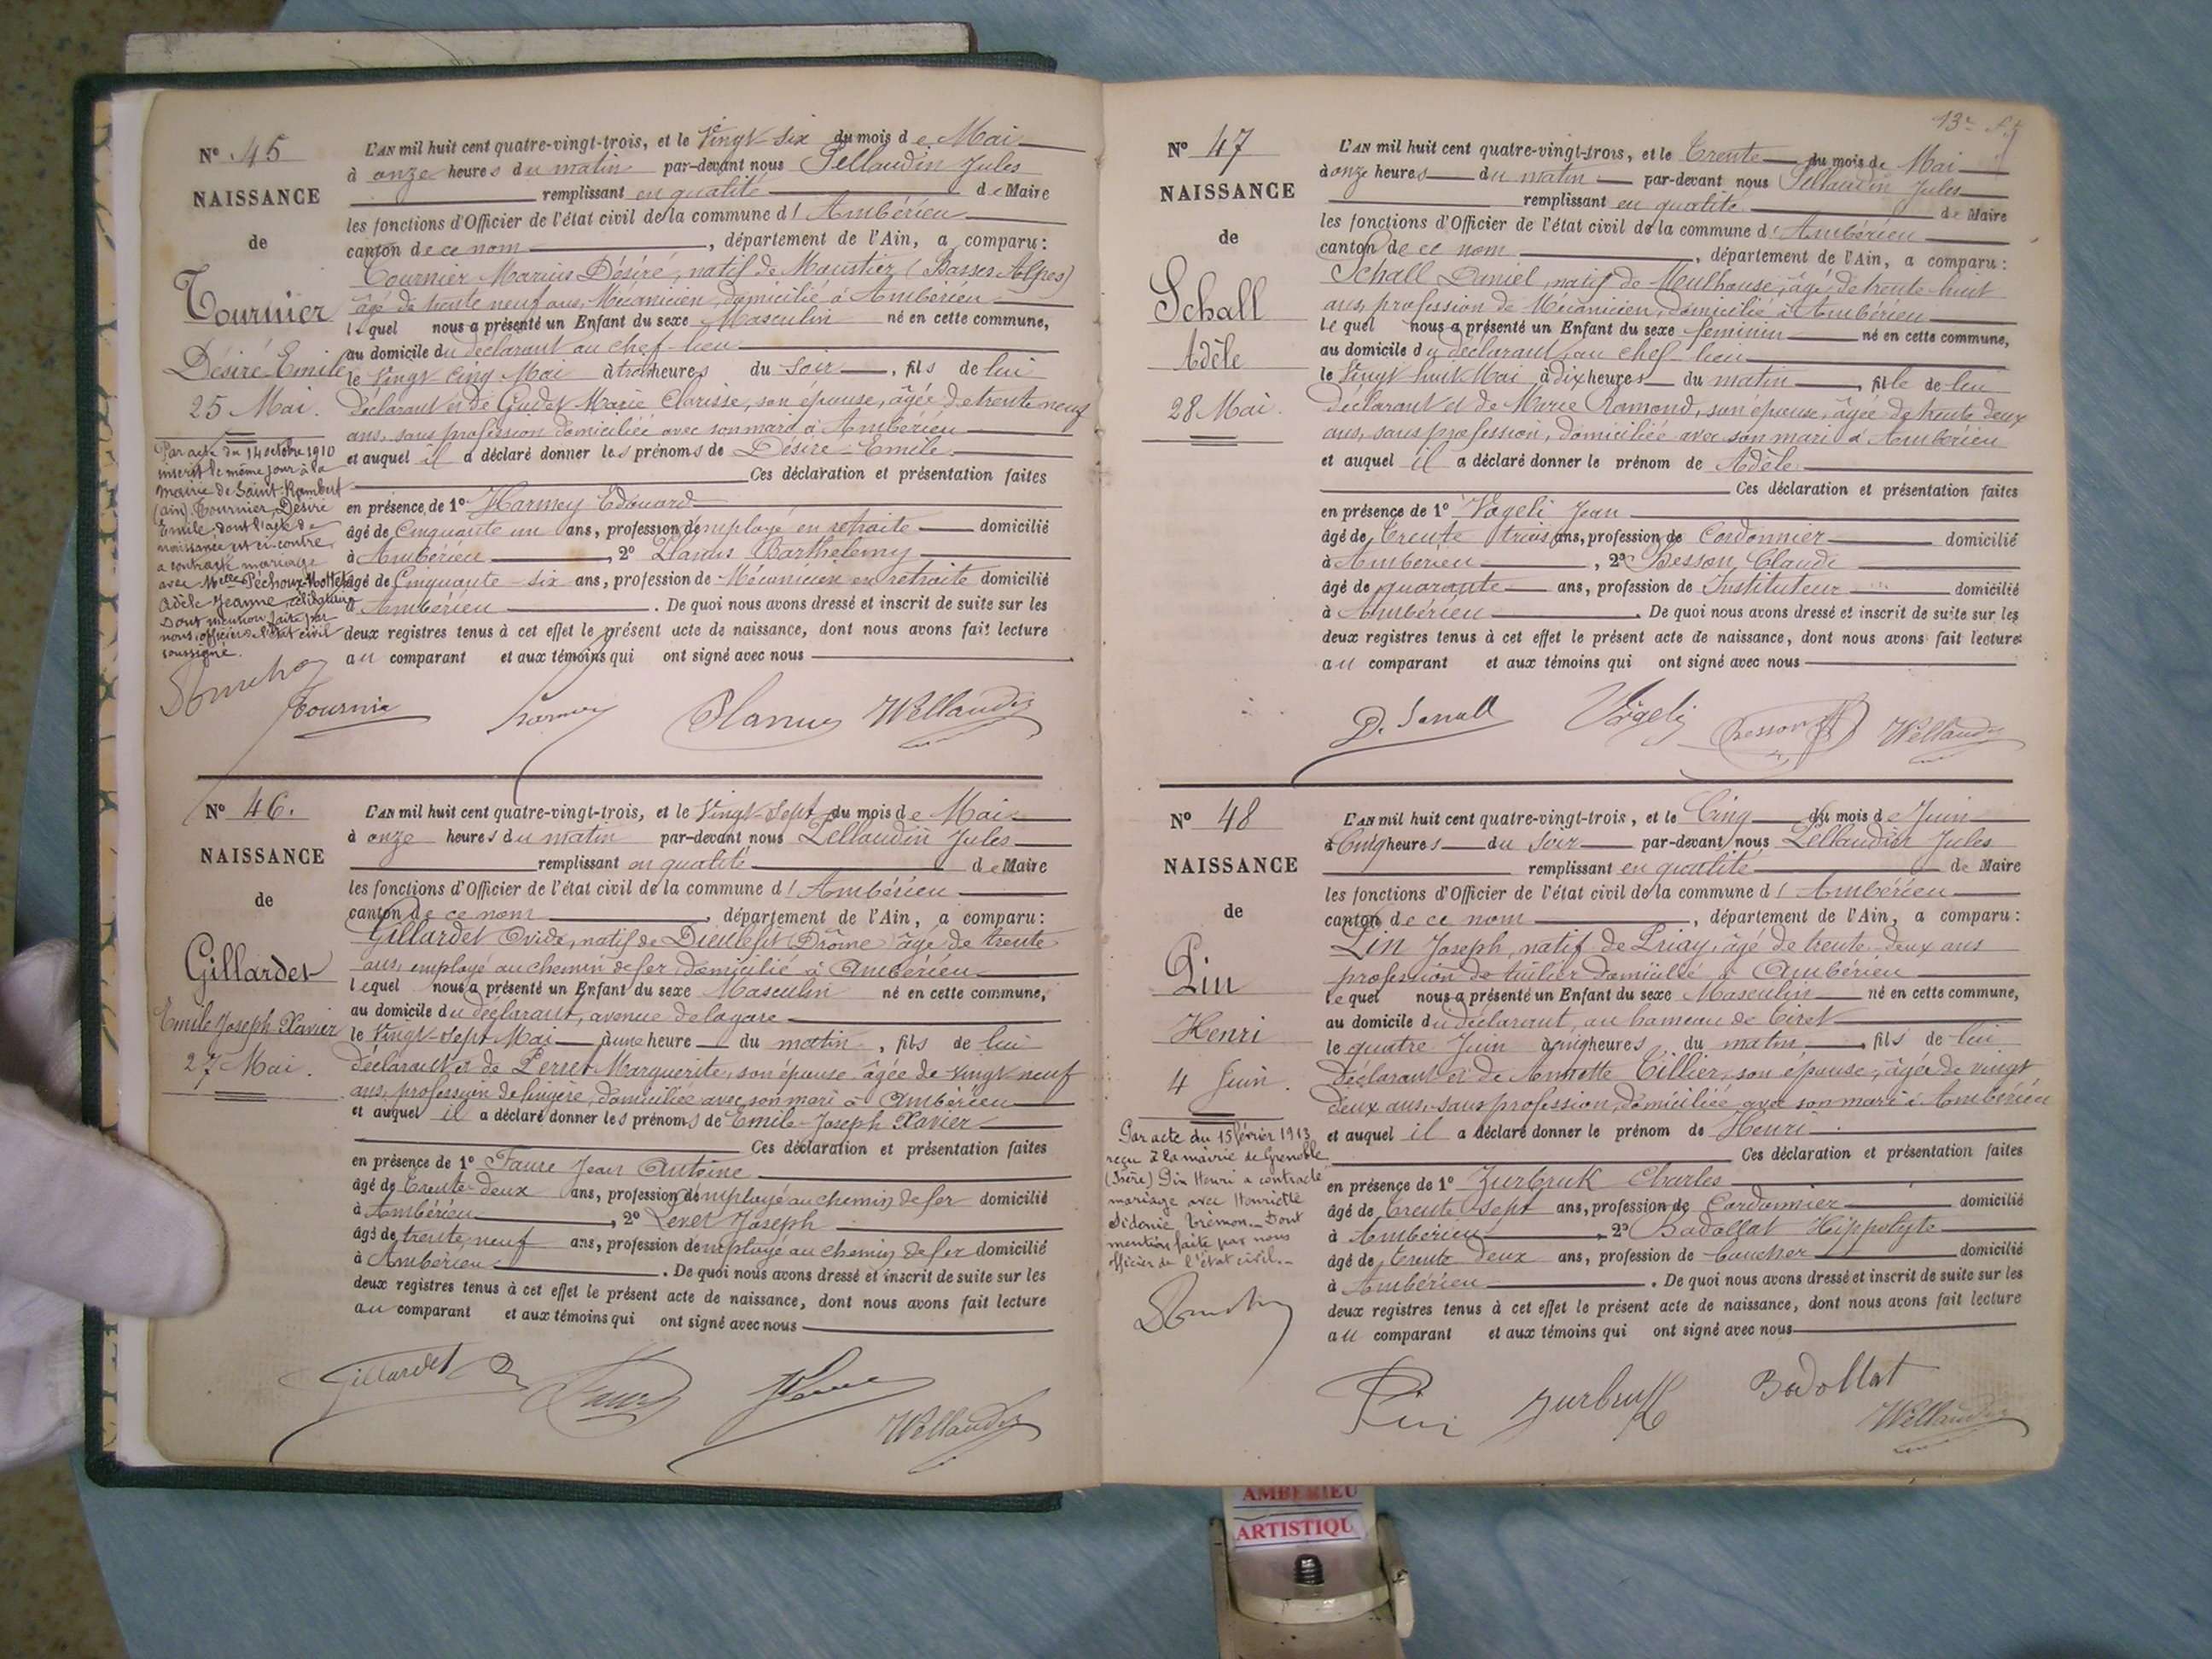 N° 45
NAISSANCE
de
Tournier
Désiré Emile
25 Mai.
Par acte du 14 octobre 1910
inscrit le même jour à la
mairie de Saint-Rambert
(ain) Tournier, Désiré
Emile dont l'acte de
naissance est ci-contre,
a contracté mariage
avec Melle Péchoux
Adèle Jeanne, célibataire
Dont mention faite par
nous, officier de l'état civil
soussigné.
L'AN mil huit cent quatre-vingt-trois, et le Vingt-six du mois de Mai
à onze heures du matin par-devant nous Pellaudin Jules
remplissant en qualité de Maire
les fonctions d'Officier de l'état civil de la commune d'Ambérieu
canton de ce nom, département de l'Ain, a comparu:
Tournier Marius Désiré, natif de Moustier (Basses Alpes)
âgé de trente neuf ans, Mécanicien, domicilié à Ambérieu
lequel nous a présenté un Enfant du sexe Masculin né en cette commune,
au domicile du déclarant au chef-lieu
le Vingt cinq Mai à trois heures du soir, fils de lui
déclarant et de Gudet Marie Clarisse, son épouse, âgée de trente neuf
ans, sans profession domiciliée avec son mari à Ambérieu
et auquel il a déclaré donner les prénoms de Désiré-Emile
Ces déclaration et présentation faites
en présence de 1° Harmey Edouard
âgé de Cinquante un ans, profession d'employé en retraite domicilié
à Ambérieu, 2° Planus Barthelemy
âgé de Cinquante-six ans, profession de Mécanicien en retraite domicilié
à Ambérieu. De quoi nous avons dressé et inscrit de suite sur les
deux registres tenus à cet effet le présent acte de naissance, dont nous avons fait lecture
au comparant et aux témoins qui ont signé avec nous
Tournier Harmey Planus Pellaudin
N° 46.
NAISSANCE
de
Gillardet
Emile Joseph Xavier
27 Mai.
L'AN mil huit cent quatre-vingt-trois, et le Vingt-Sept du mois de Mai
à onze heures du matin par-devant nous Pellaudin Jules
remplissant en qualité de Maire
les fonctions d'Officier de l'état civil de la commune d'Ambérieu
canton de ce nom, département de l'Ain, a comparu:
Gillardet Ovide, natif de Dieulefit (Drôme) âgé de trente
ans, employé au chemin de fer, domicilié à Ambérieu
lequel nous a présenté un Enfant du sexe Masculin né en cette commune,
au domicile du déclarant, avenue de la gare
le Vingt-sept Mai à une heure du matin, fils de lui
déclarant et de Perret Marguerite, son épouse âgée de vingt neuf
ans, profession de lingère, domiciliée avec son mari à Ambérieu
et auquel il a déclaré donner les prénoms de Emile-Joseph Xavier
Ces déclaration et présentation faites
en présence de 1° Faure Jean Antoine
âgé de Trente-deux ans, profession d'employé au chemin de fer domicilié
à Ambérieu, 2° Joseph
âgé de trente neuf ans, profession d'employé au chemin de fer domicilié
à Ambérieu. De quoi nous avons dressé et inscrit de suite sur les
deux registres tenus à cet effet le présent acte de naissance, dont nous avons fait lecture
au comparant et aux témoins qui ont signé avec nous
Gillardet Faure Pellaudin
N° 47
NAISSANCE
de
Schall
Adèle
28 Mai.
L'AN mil huit cent quatre-vingt-trois, et le Trente du mois de Mai
à onze heures du matin par-devant nous Pellaudin Jules
remplissant en qualité de Maire
les fonctions d'Officier de l'état civil de la commune d'Ambérieu
canton de ce nom, département de l'Ain, a comparu:
Schall Daniel, natif de Mulhouse, âgé de trente-huit
ans, profession de Mécanicien, domicilié à Ambérieu
lequel nous a présenté un Enfant du sexe féminin né en cette commune,
au domicile du déclarant, au chef-lieu
le Vingt huit Mai à dix heures du matin, fille de lui
déclarant et de Marie Ramond, son épouse, âgée de trente deux
ans, sans profession, domiciliée avec son mari à Ambérieu
et auquel il a déclaré donner le prénom de Adèle
Ces déclaration et présentation faites
en présence de 1° Vögeli Jean
âgé de Trente trois ans, profession de Cordonnier domicilié
à Ambérieu, 2° Besson Claude
âgé de quarante ans, profession de Instituteur domicilié
à Ambérieu. De quoi nous avons dressé et inscrit de suite sur les
deux registres tenus à cet effet le présent acte de naissance, dont nous avons fait lecture
au comparant et aux témoins qui ont signé avec nous
D. Schall Vögeli Besson Pellaudin
N° 48
NAISSANCE
de
Pin
Henri
4 Juin.
Par acte du 15 février 1913
reçu à la mairie de Grenoble
(Isère) Pin Henri a contracté
mariage avec Henriette
Sidonie Trémon. Dont
mention faite par nous
officier de l'état civil.
L'AN mil huit cent quatre-vingt-trois, et le Cinq du mois de Juin
à Cinq heures du Soir par-devant nous Pellaudin Jules
remplissant en qualité de Maire
les fonctions d'Officier de l'état civil de la commune d'Ambérieu
canton de ce nom, département de l'Ain, a comparu:
Pin Joseph, natif de Priay, âgé de trente-deux ans
profession de tuilier domicilié à Ambérieu
lequel nous a présenté un Enfant du sexe Masculin né en cette commune,
au domicile du déclarant, au hameau de Tiret
le quatre Juin à heures du matin, fils de lui
déclarant et de Annette Tillier, son épouse, âgée de vingt
deux ans, sans profession, domiciliée avec son mari à Ambérieu
et auquel il a déclaré donner le prénom de Henri.
Ces déclaration et présentation faites
en présence de 1° Zurbruk Charles
âgé de Trente sept ans, profession de Cordonnier domicilié
à Ambérieu, 2° Badollat Hippolyte
âgé de trente deux ans, profession de boucher domicilié
à Ambérieu. De quoi nous avons dressé et inscrit de suite sur les
deux registres tenus à cet effet le présent acte de naissance, dont nous avons fait lecture
au comparant et aux témoins qui ont signé avec nous
Pin Zurbruk Badollat Pellaudin
AMBERIEU
ARTISTIQU